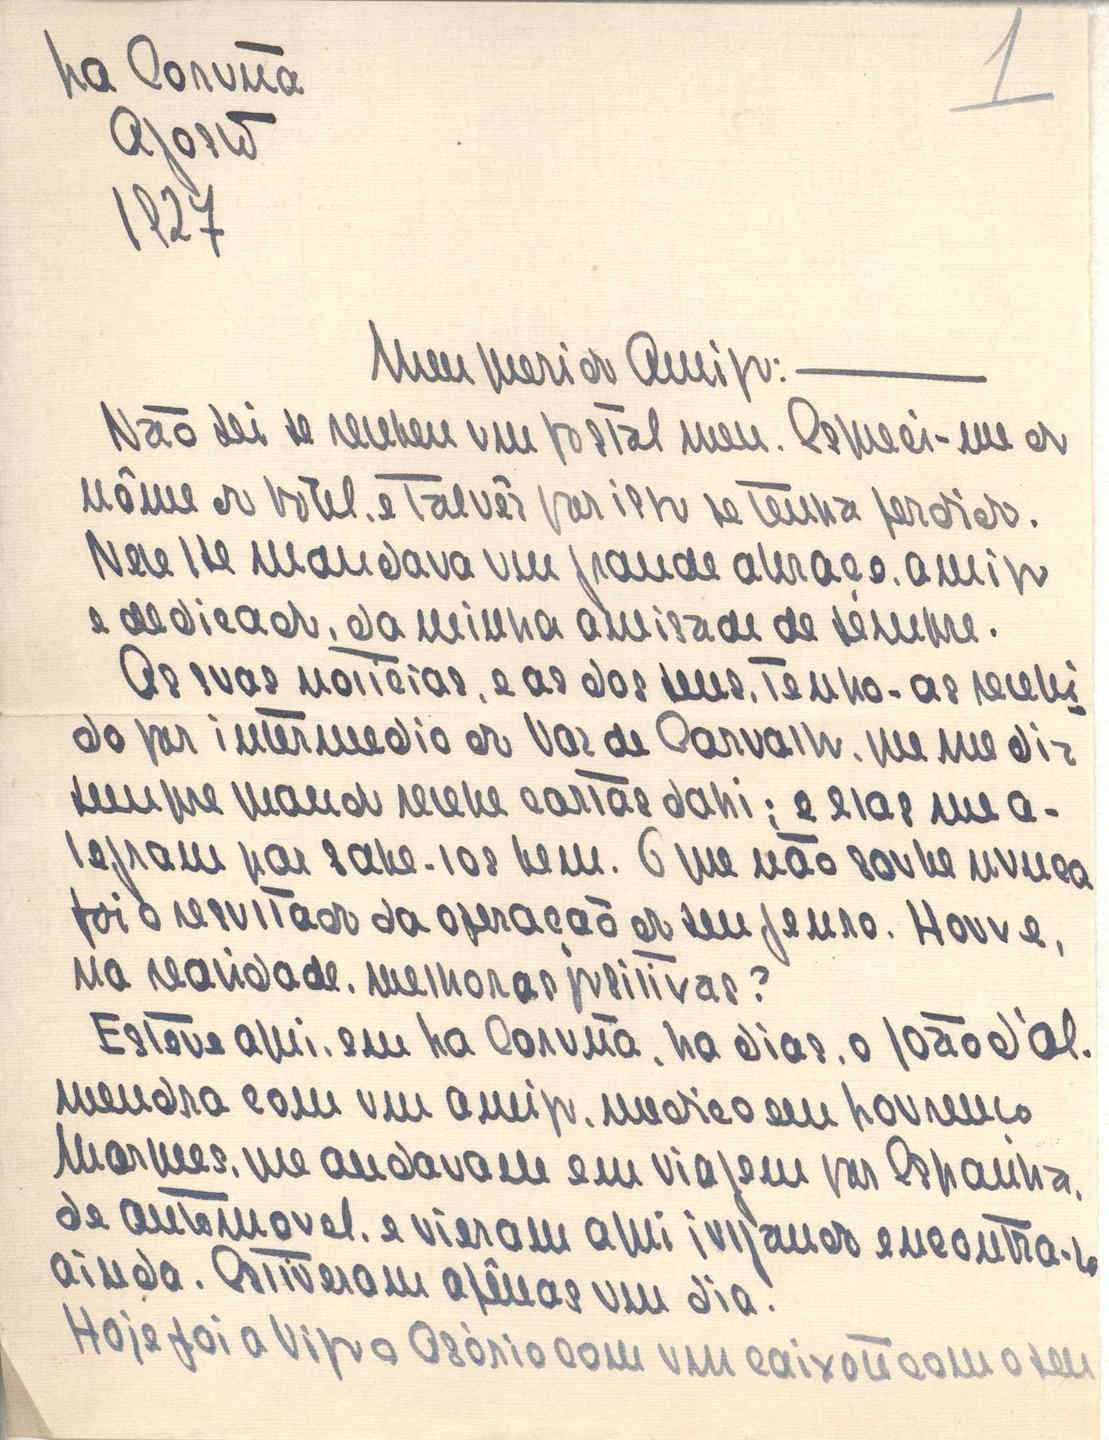 La Coruña
Agosto
1927
1
Meu querido Amigo:
Não sei se recebeu um postal meu. Esqueci-me do
nôme do hotel, e talvês por isso se tenha perdido.
Nele lhe mandava um grande abraço, amigo
e dedicado, da minha amisade de sempre.
As suas noticias, e as dos seus, tenho-as recebi
do por intermedio do Vaz de Carvalho, que me diz
sempre quando recebe cartas dahi; e elas me a-
legram por sabe-los bem. O que não soube nunca
foi o resultado da operação do seu genro. Houve,
na realidade, melhoras positivas?
Estêve aqui, em La Coruña, ha dias, o João d'Al-
mendra com um amigo, medico em Lourenço
Marques, que andavam em viagem por Espanha,
de automovel, e vieram aqui julgando encontra-lo
ainda. Estiveram apênas um dia.
Hoje foi a Vigo o Osório com um caixote com o seu